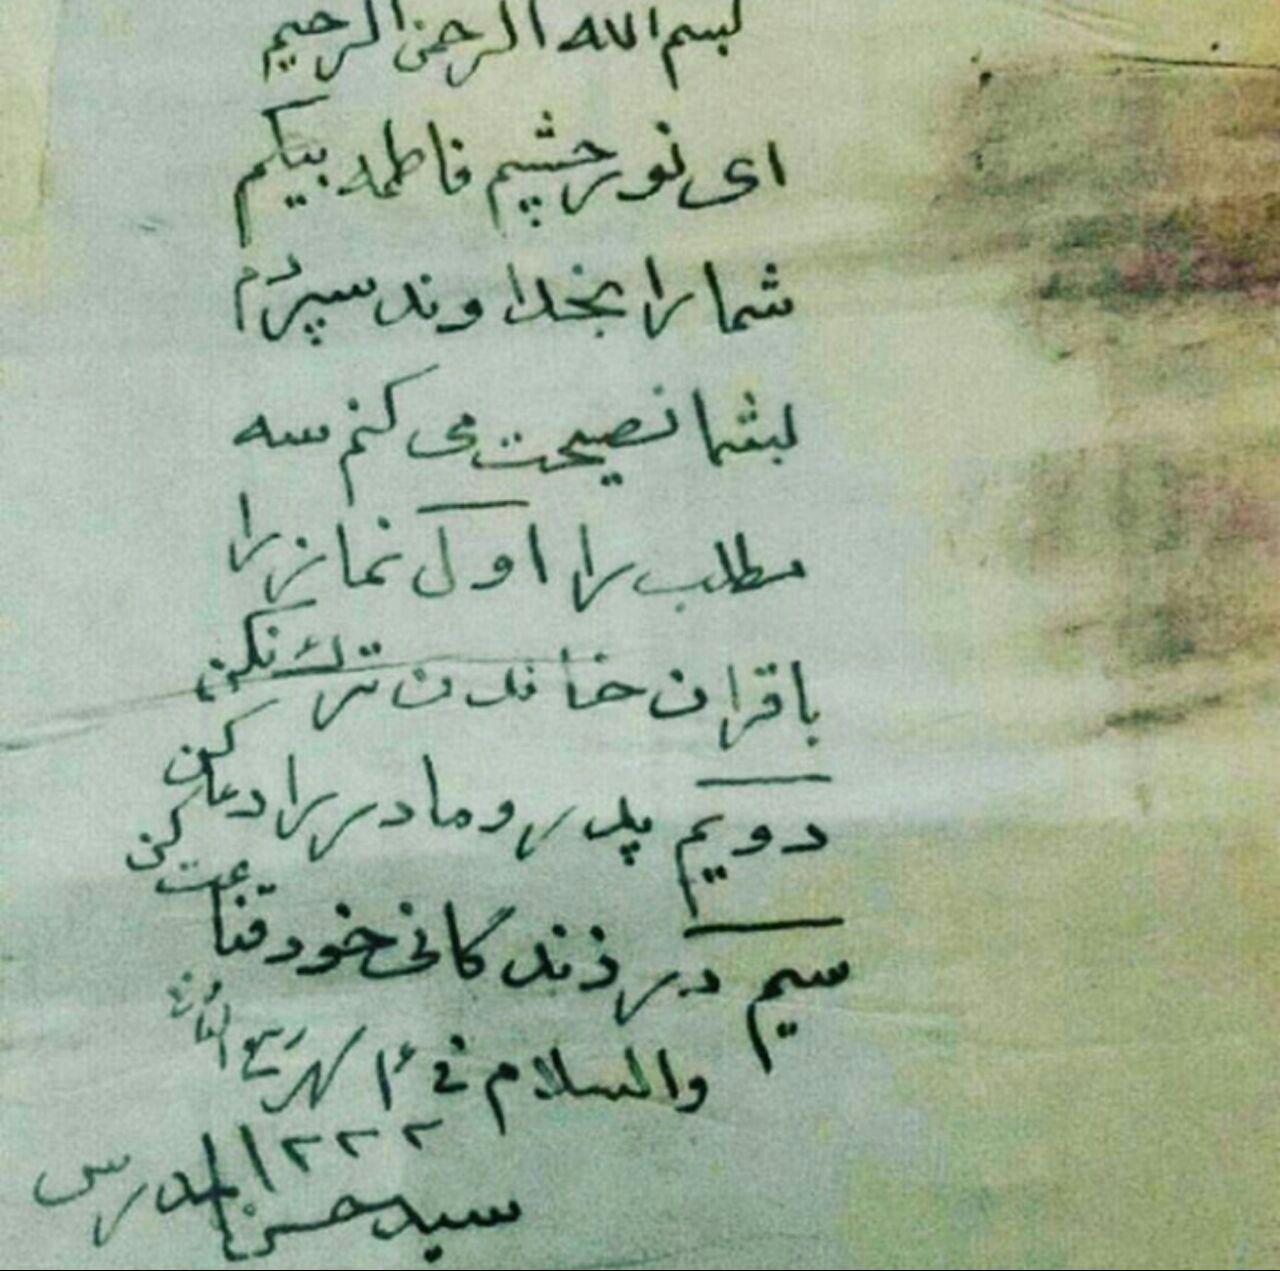 بسم الله الرحمن الرحیم
ای نور چشم فاطمه بیکم
شما را بخداوند سپردم
بشما نصیحت می کنم سه
مطلب را اول نماز را
با قران خاندن ترک نکن
دویم پدر و مادر را دعا کن
سیم در زندکانی خود قناعت کن
والسلام فی شهر ربیع الثانی
۱۳۳۳
سید حسن المدرس